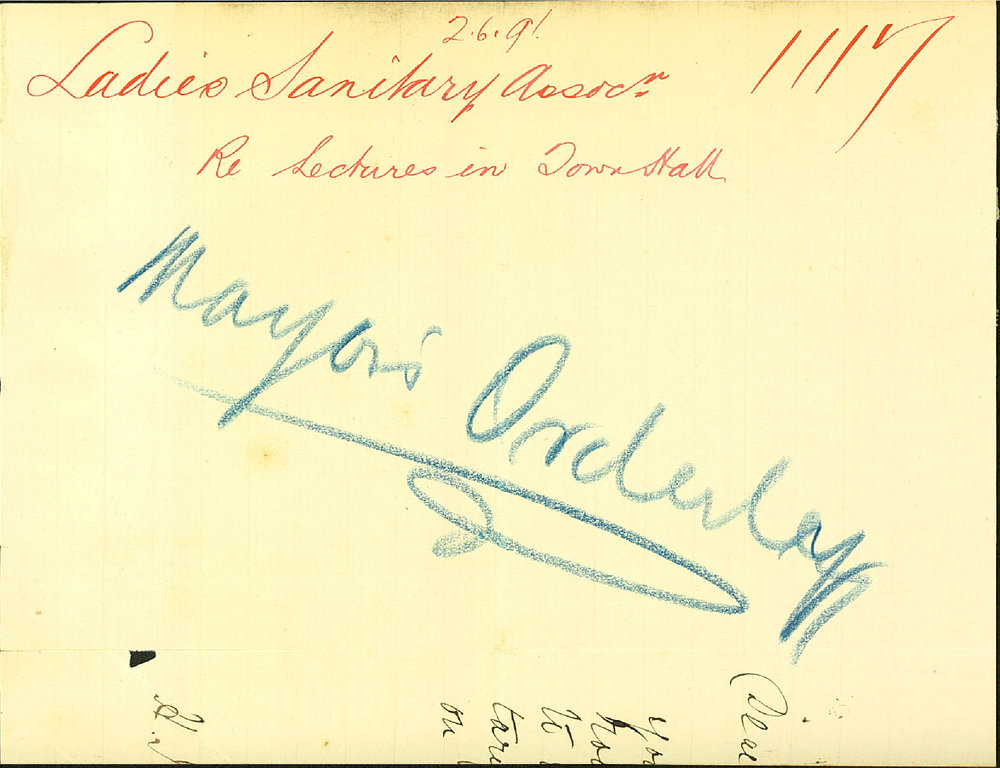 2.6.91
Ladies Sanitary Assocn
1117
Re Lectures in Town Hall
Mayor's Orderly
Dear
you
to
on